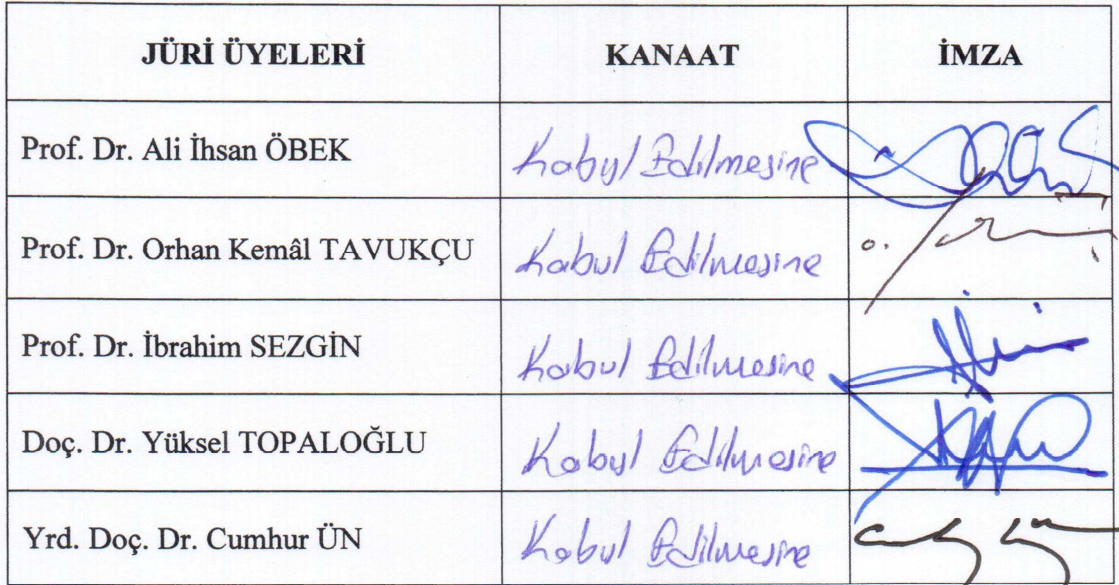 JÜRİ ÜYELERİ KANAAT İMZA
Prof. Dr. Ali İhsan ÖBEK Kabul Edilmesine
Prof. Dr. Orhan Kemâl TAVUKÇU Kabul Edilmesine
Prof. Dr. İbrahim SEZGİN Kabul Edilmesine
Doç. Dr. Yüksel TOPALOĞLU Kabul Edilmesine
Yrd. Doç. Dr. Cumhur ÜN Kabul Edilmesine